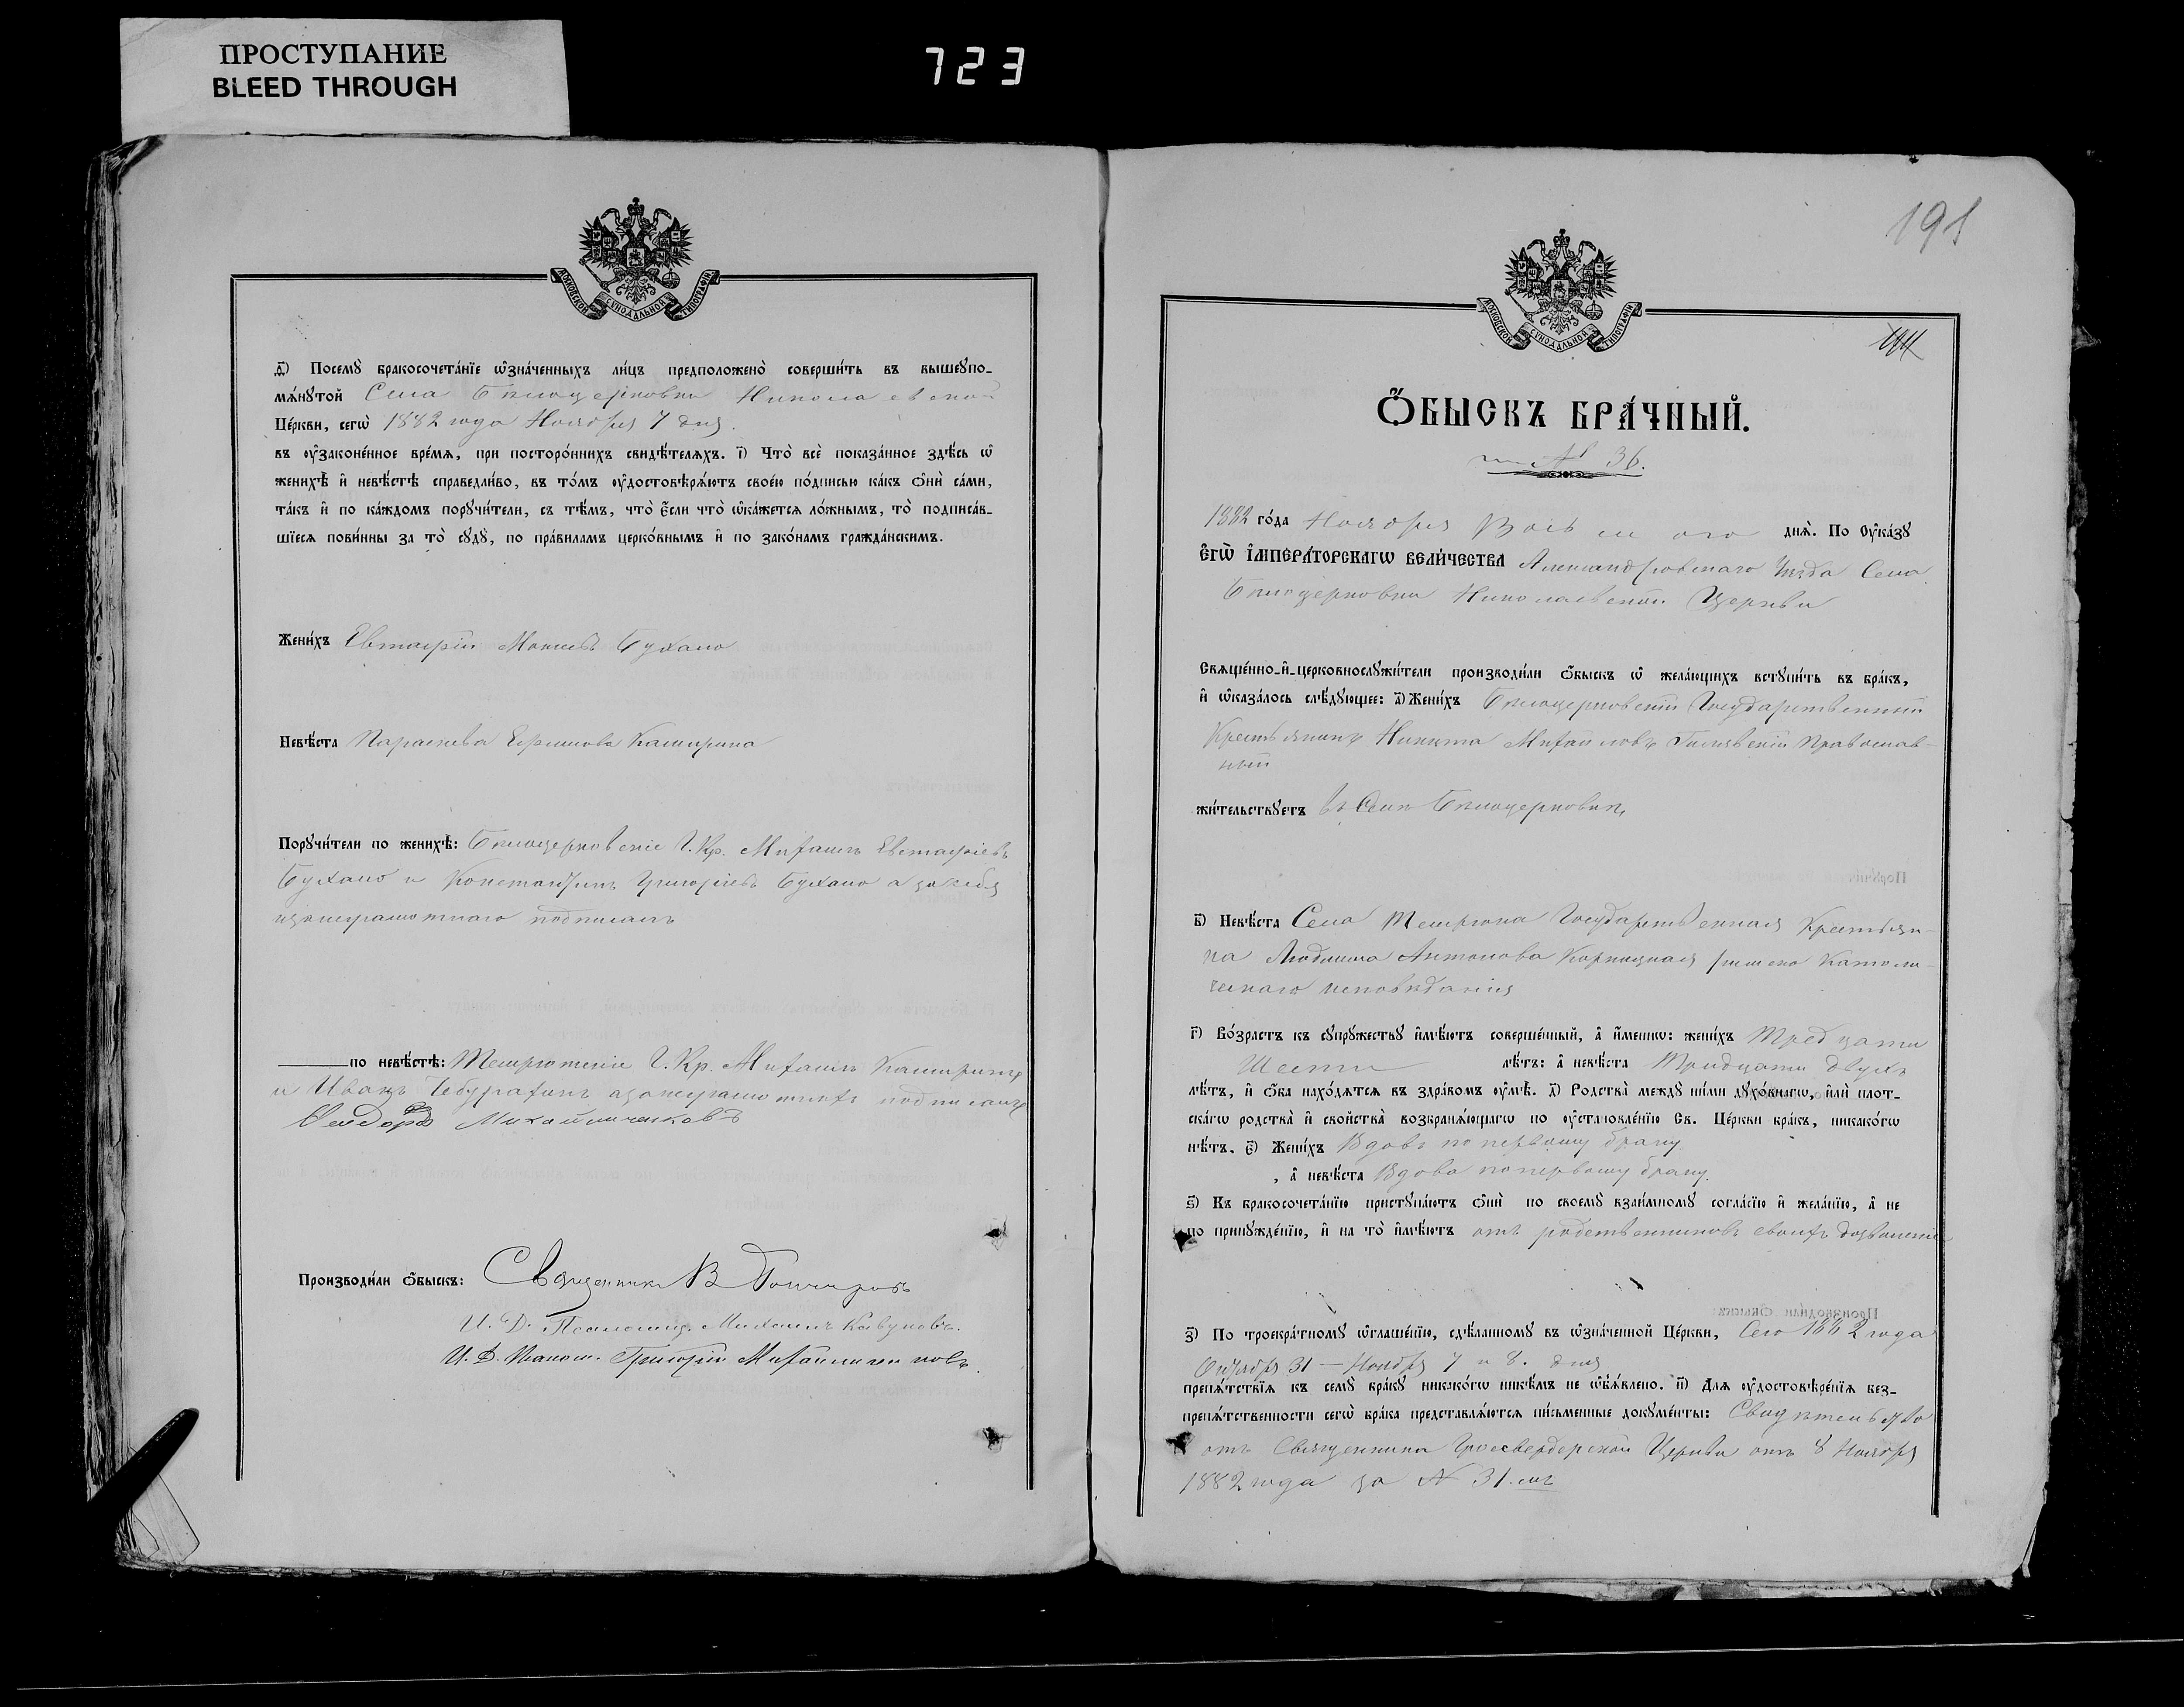 ПРОСТУПАНИЕ
BLEED THROUGH
723
МОСКОВСКОЙ СѴНОДАЛЬНОЙ ТИПОГРАФІИ
д҃) Посемꙋ̀ бракосочета́нїе ѡ҆зна́ченныхъ ли́цъ предположено̀ соверши́ть въ вышеꙋпо-
мѧ́нꙋтой Села Бѣлоцерковки Николаевской
Це́ркви, сегѡ̀ 1882 года Ноября 7 дня.
въ ᲂу҆законе́нное вре́мѧ, при посторо́ннихъ свидѣ́телѧхъ. і҃) Что̀ всѐ показа́нное здѣ́сь ѡ҆
женихѣ̀ и҆ невѣ́стѣ справедли́во, въ то́мъ ᲂу҆достовѣрѧ́ютъ свое́ю по́дписью ка́къ ѻ҆нѝ са́ми,
та́къ и҆ по ка́ждомъ порꙋчи́тели, съ тѣ́мъ, что̀ є҆́сли что̀ ѡ҆ка́жетсѧ ло́жнымъ, то̀ подписа́в-
шїесѧ пови́нны за то̀ сꙋдꙋ̀, по пра́виламъ церко́внымъ и҆ по зако́намъ гражда́нскимъ.
Жени́хъ Евтафій Бухало
Невѣ́ста Параскева Ефимова Каширина
Порꙋчи́тели по женихѣ̀: Бѣлоцерковскіе Г. Кр. Михаилъ Евтафіевъ
Бухало и Константинъ Григоріевъ Бухало а за себя
неграмотнаго подписалъ
по невѣ́стѣ: Темрюкскіе Г. Кр. Михаилъ Каширинъ
и Иванъ Чебурахинъ подписалъ
Михайличенковъ
Производи́ли ѻ҆́быскъ: Священникъ В Гончаровъ
И. Д. Псаломщ. Михаилъ Кавуновъ.
И. Д. Григорій Михайличенковъ.
191
МОСКОВСКОЙ СѴНОДАЛЬНОЙ ТИПОГРАФІИ
Ѻ҆́БЫСКЪ БРА́ЧНЫЙ.
№ 36.
1882 го́да Ноября Восьмого днѧ̀. По Оу҆ка́зꙋ
Є҆гѡ̀ І҆мпера́торскагѡ вели́чества Александровскаго Уѣзда Села
Бѣлоцерковки Николаевской Церкви
Свѧще́нно-и҆-церковнослꙋжи́тели производи́ли ѻ҆́быскъ ѡ҆ жела́ющихъ встꙋпи́ть въ бра́къ,
и҆ ѡ҆каза́лось слѣ́дꙋющее: а҃) Жени́хъ Бѣлоцерковскій Государственный
Крестьянинъ Никита Михайловъ Православ-
ный
жи́тельствꙋетъ въ Селѣ Бѣлоцерковкѣ
в҃) Невѣ́ста Села Темрюка Государственная Крестьян-
ка Людмила Антонова Корницкая римско Католи-
ческаго исповѣданія
г҃) Во́зрастъ къ сꙋпрꙋ́жествꙋ и҆мѣ́ютъ соверше́нный, а҆ и҆́меннѡ: жени́хъ Тридцати
Шести лѣ́тъ: а҆ невѣ́ста Тридцати двухъ
лѣ́тъ, и҆ ѻ҆́ба нахо́дѧтсѧ въ здра́вомъ ᲂу҆мѣ̀. д҃) Родства̀ междꙋ̀ ни́ми дꙋхо́внагѡ, и҆лѝ плот-
ска́гѡ родства̀ и҆ сво́йства возбранѧ́ющагѡ по ᲂу҆становле́нїю Св. Це́ркви бра́къ, никако́гѡ
нѣ́тъ. є҃) Жени́хъ Вдовъ по первому браку
, а҆ невѣ́ста Вдова по первому браку.
ѕ҃) Къ бракосочета́нїю пристꙋпа́ютъ ѻ҆нѝ по своемꙋ̀ взаи́мномꙋ согла́сїю и҆ жела́нїю, а҆ не
по принꙋжде́нїю, и҆ на то̀ и҆мѣ́ютъ отъ родственниковъ своихъ дозволеніе
з҃) По троекра́тномꙋ ѡ҆глаше́нїю, сдѣ́ланномꙋ въ ѡ҆зна́ченной Це́ркви, Сего 1882 года
Октября 31 — Ноября 7 и 8. дня
препѧ́тствїѧ къ семꙋ̀ бра́кꙋ никако́гѡ никѣ́мъ не ѡ҆бъѧ́влено. и҃) Длѧ ᲂу҆достовѣре́нїѧ без-
препѧ́тственности сегѡ̀ бра́ка представлѧ́ютсѧ пи́сьменные докꙋме́нты: Свидѣтельство
отъ Священника Церкви отъ 8 Ноября
1882 года за № 31.мъ